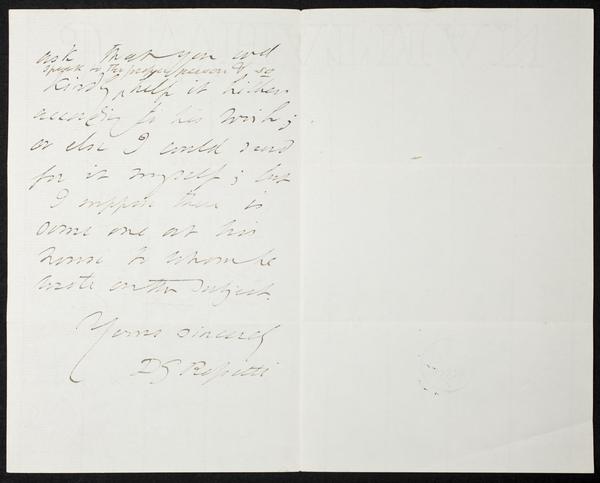 ask that you wd
speak to the proper person & so
kindly help it hither
according to his wish;
or else I could send
for it myself; but
I suppose there is
some one at his
house to whom he
wrote on the subject.
Yours sincerely
DG Rossetti